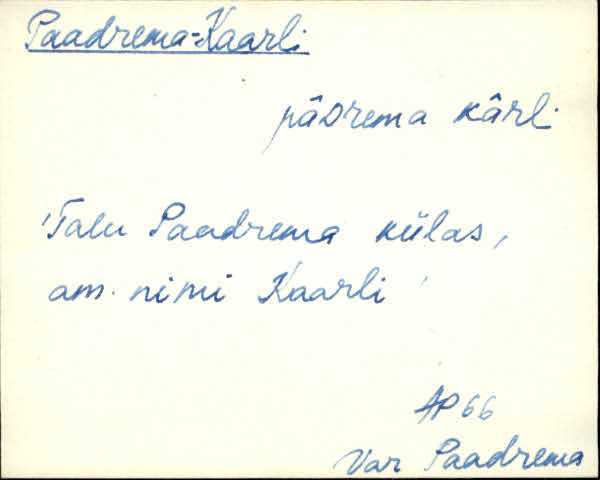 Paadrema-Kaarli
pâDrema kârli
'Talu Paadrema külas,
am. nimi Kaarli'
AP 66
Var Paadrema